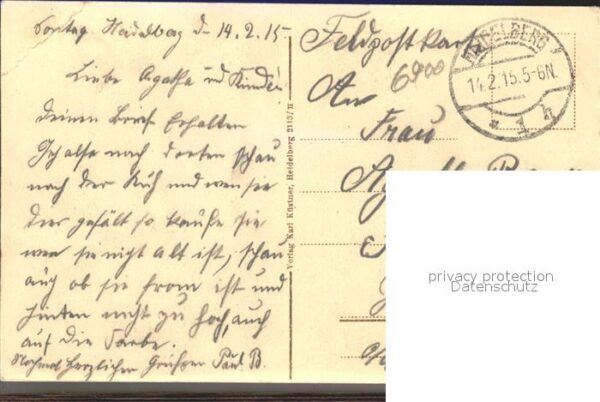 Sontag Heidelberg d 14.2.15
Liebe Agatha und Kinder
deinen Brief Erhalten
nach dorten schau
nach der Kuh und wen sie
dier gefält so kaufe sie
wen sie nigt alt ist, schau
aug ob sie from ist und
hinden nicht zu hoch auch
auf die Farbe.
Nochmal herzlichen Grüsse Paul B.
Verlag Karl Küstner, Heidelberg 2113/II
Feldpostkarte
6900
An
Frau
HEIDELBERG
14.2.15.5-6N.
* 1 h
privacy protection
Datenschutz